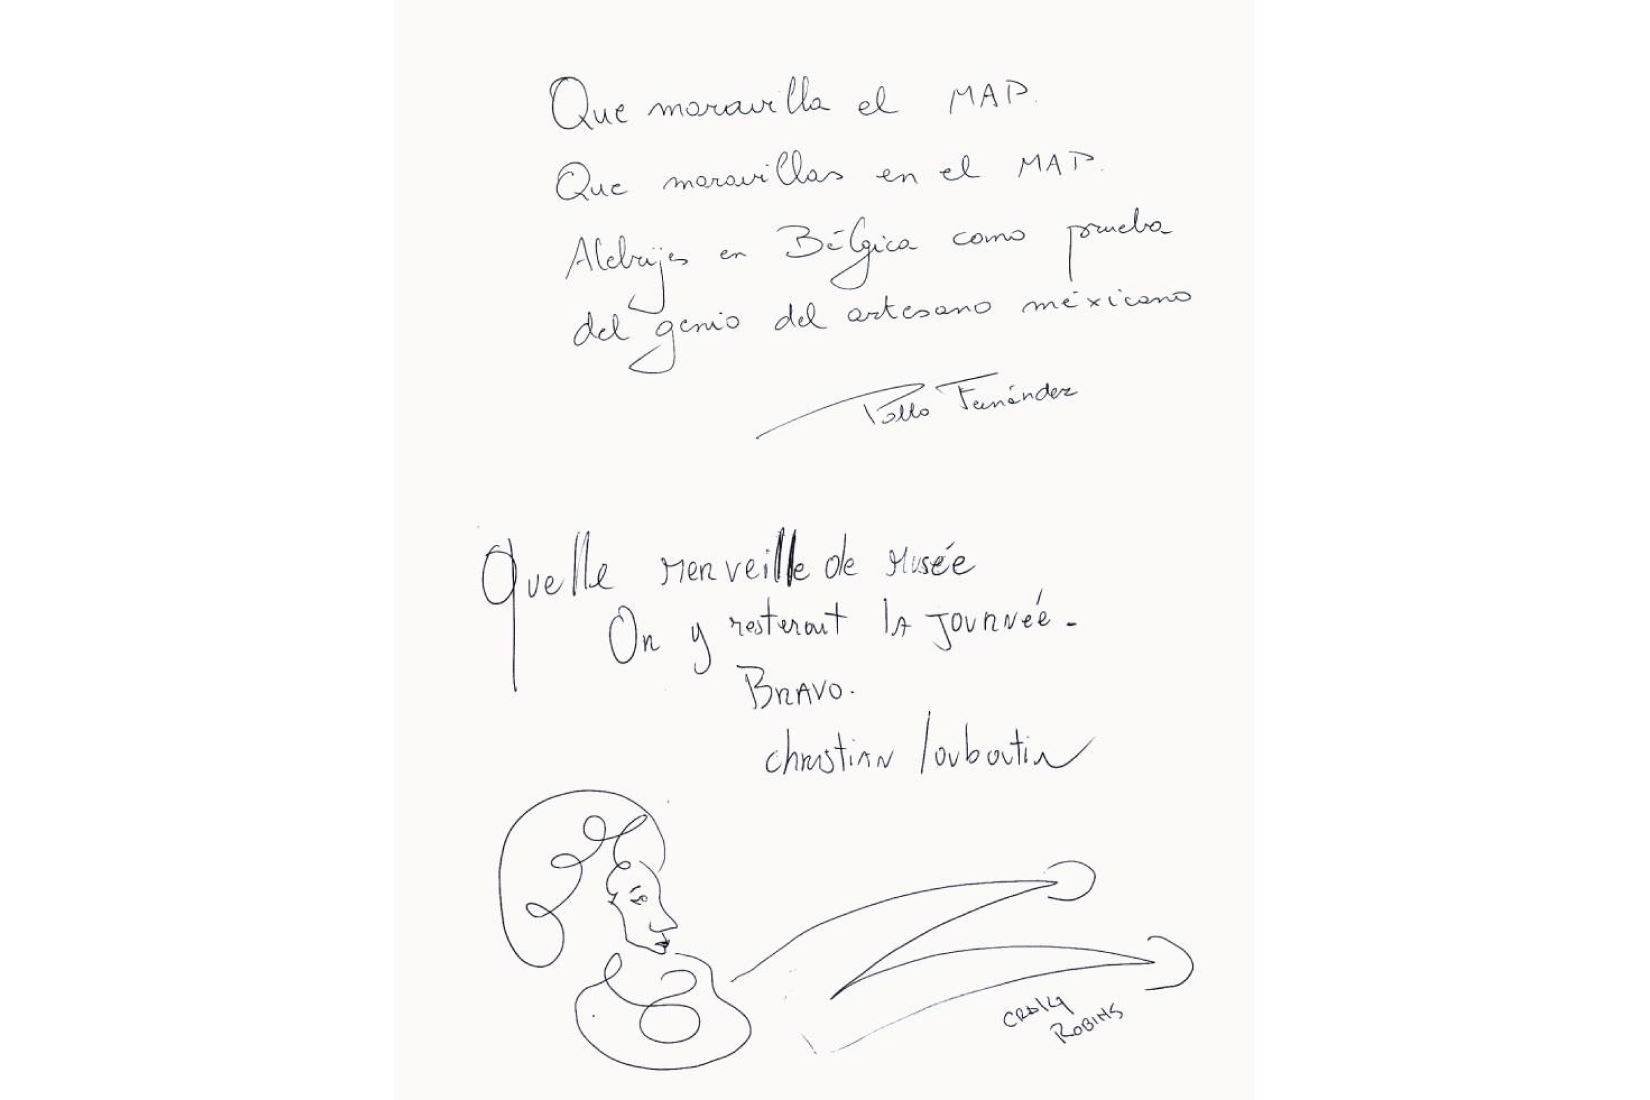 Que maravilla el MAP.
Que maravillas en el MAP.
Alebrijes en Bélgica como prueba
del genio del artesano méxicano
Pollo Fernández
Quelle merveille de Musée
On y resterait la journée -
Bravo.
christian louboutin
CRAIG
ROBINS